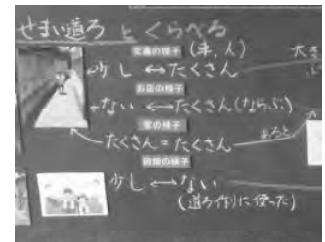 せまい道ろ とくらべる
交通の様子 (車、人)
少し ⟷ たくさん
お店の様子
ない ⟷ たくさん(ならぶ)
家の様子
たくさん = たくさん
少し ⟷ ない
(道ろ作りに使った)